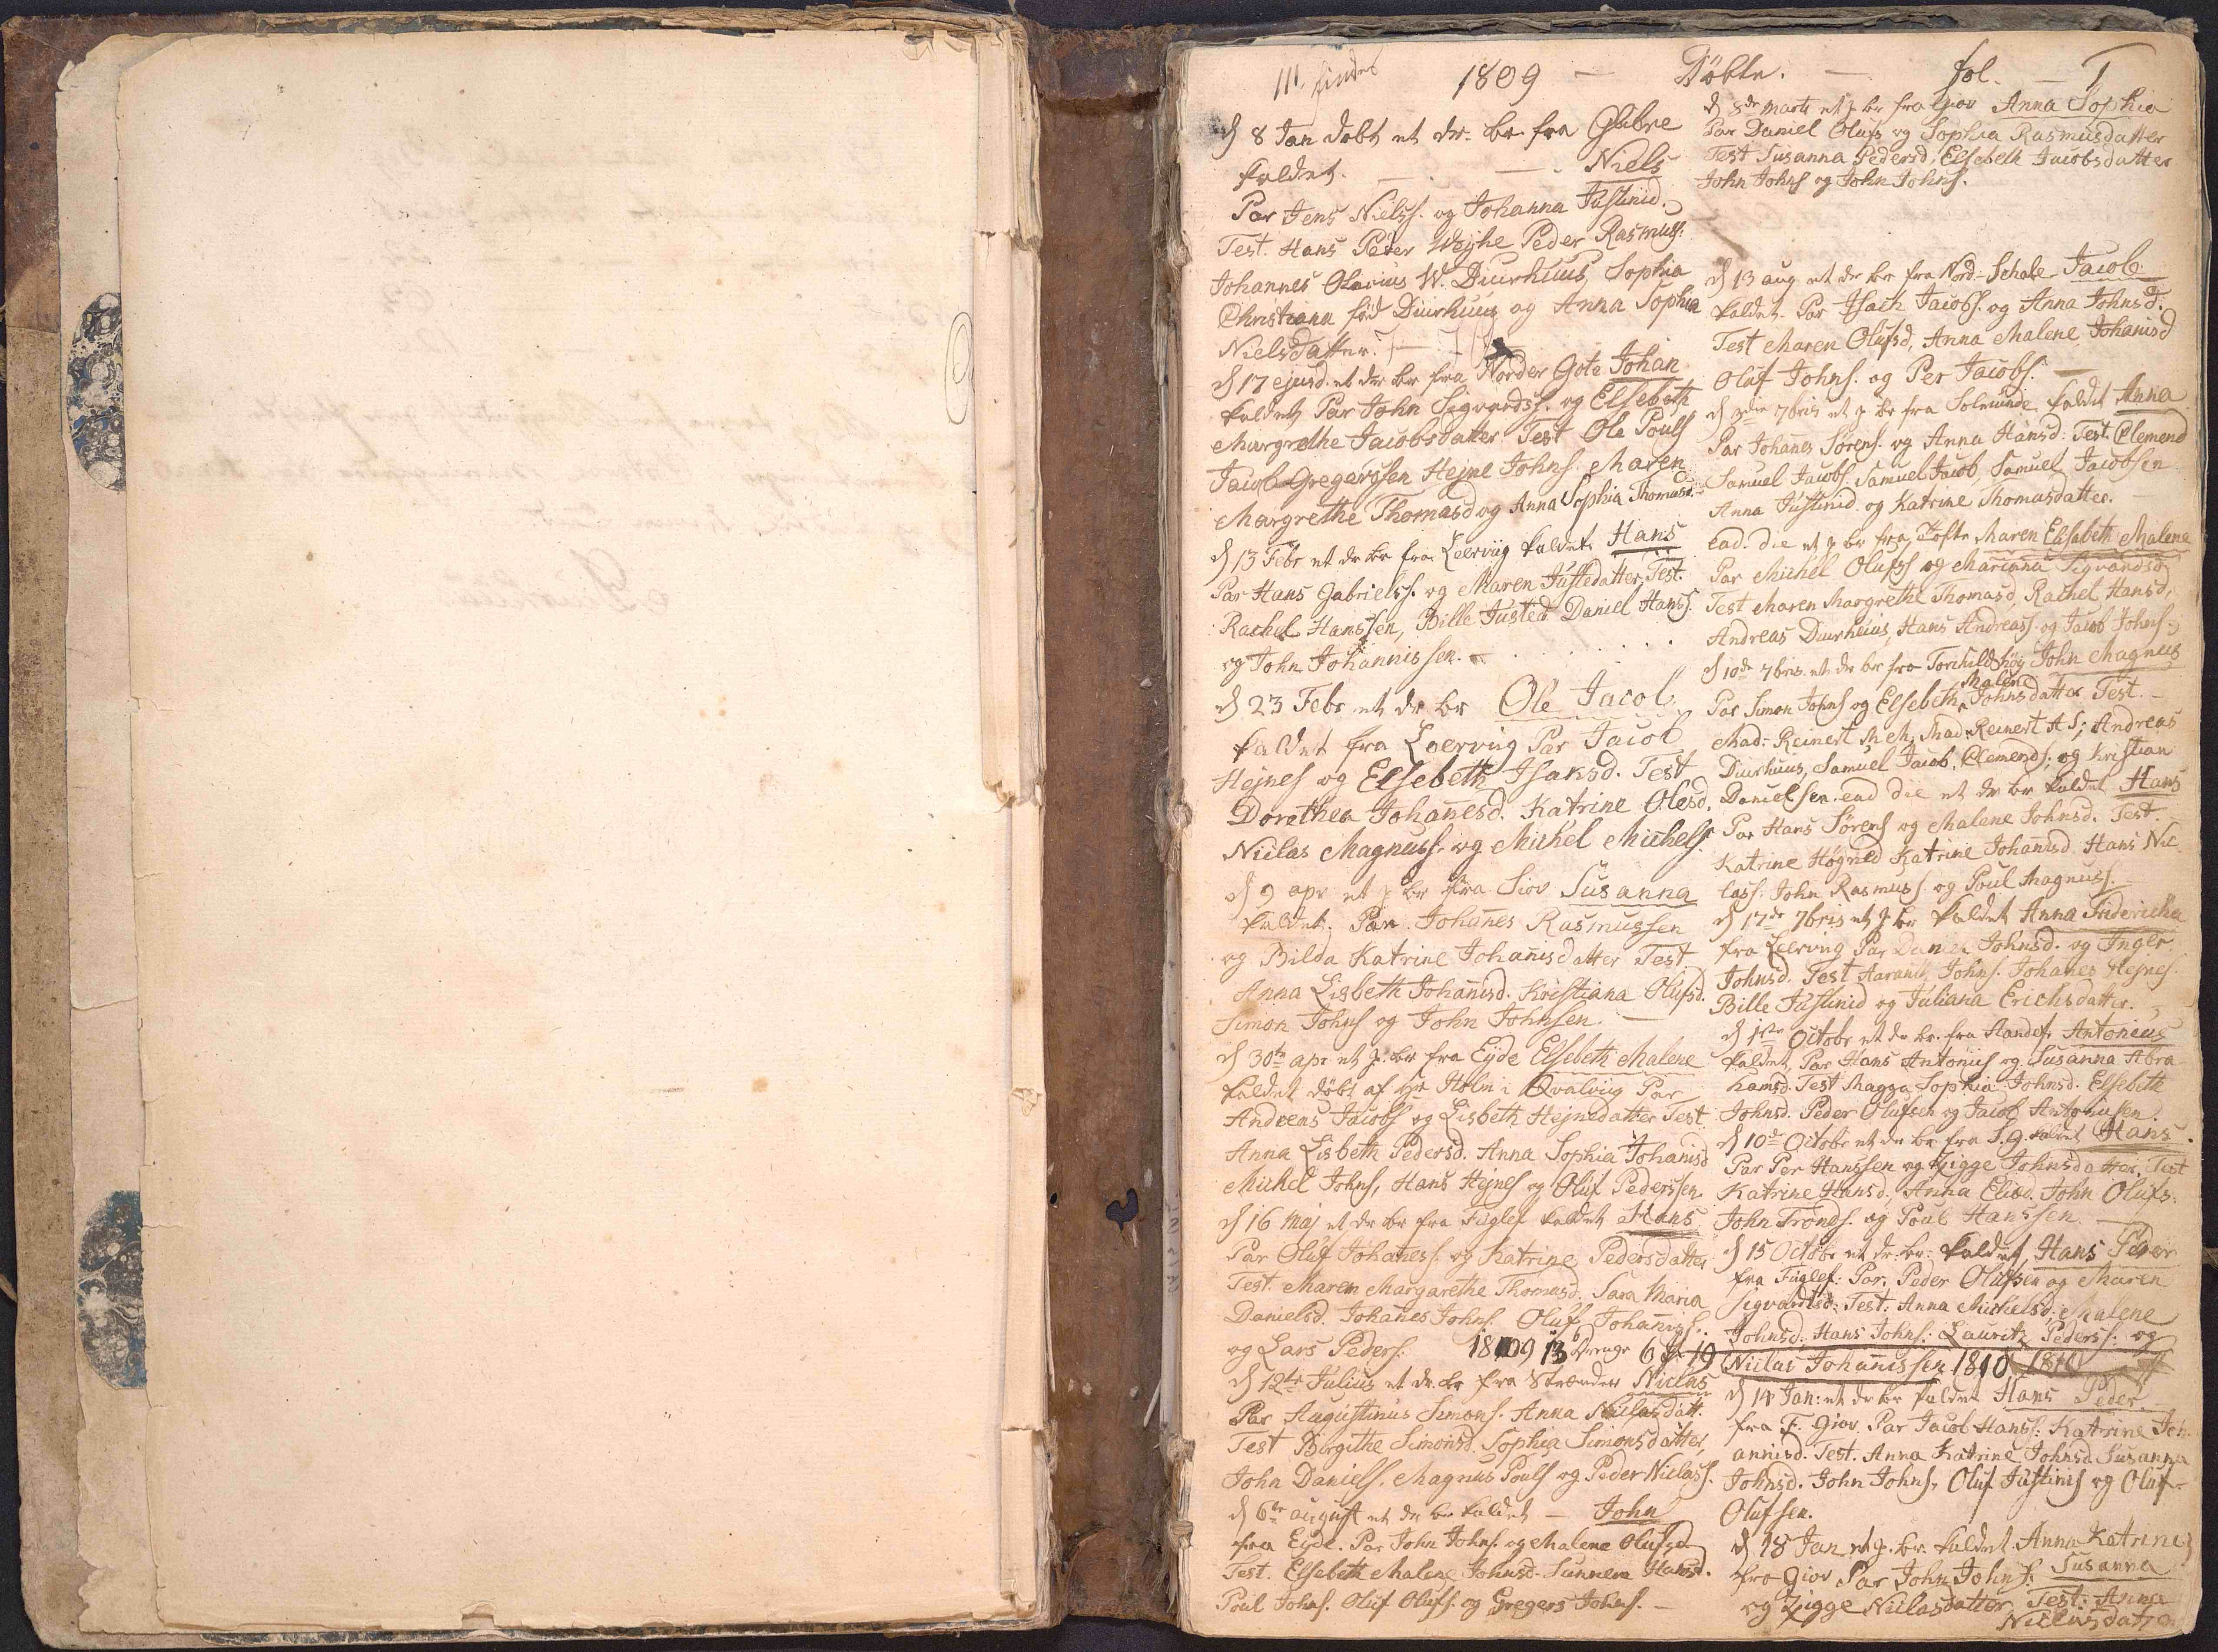 1809 — Döbte. — fol. — 1
d 8 Jan döbt et dr. br. fra Glibre
kaldet. — . — . Niels
Par Jens Nielss. og Johanna Justinid.
Test. Hans Peder Weyhe Peder Rasmuss.
Johannes Olavius W. Diurhuus, Sophia
Christiana föd Diurhuus og Anna Sophia
Nielsdatter.
d 17 ejusd. et dr br fra Norder Gote Johan
kaldet Par John Sigvardss. og Elsebeth
Margrethe Jacobsdatter Test Ole Pouls
Jacob Gregersen Hejne Johns. Maren
Margrethe Thomasd og Anna Sophia Thomasd.
d 13 Febr et dr br fra Leervig kaldet Hans
Par Hans Gabrielss. og Maren Justedatter, Test.
Rachel Hanssen, Bille Justed Daniel Hanss.
og John Johannissen.
d 23 Febr et dr br Ole Jacob
kaldet fra Leervig Par Jacob
Hejnes og Elsebeth Isaksd. Test
Dorethea Johanesd. Katrine Olesd.
Niclas Magnuss. og Michel Michels
d 9 apr et p br fra Siov Susanna
kaldet. Par. Johanes Rasmussen
og Bilda Katrine Johanisdatter Test
Anna Lisbeth Johanisd. Kristiana Olufsd.
Simon Johns og John Johnsen. —
d 30te apr et p. br fra Eyde Elsebeth Malene
kaldet döbt af Hr Holm i Qvalviig Par
Andreas Jacobs og Lisbeth Hejnedatter Test
Anna Lisbeth Pedersd. Anna Sophia Johanisd
Michel Johns, Hans Hejnes og Oluf Pederssen.
d 16 Maj et dr br fra Fuglef kaldet Hans
Par Oluf Johaness. og Katrine Pedersdatter
Test. Maren Margarethe Thomasd. Sara Maria
Danielsd. Johanes Johns. Oluf Johaniss.
og Lars Peders. 1809 13 Drenge 6 P 19
d 12te Julius et dr br fra Strænder Niclas
Par Augustinus Simons. Anna Niclasdatt.
Test Birgithe Simonsd. Sophia Simonsdatter
John Daniels. Magnus Pouls og Peder Niclass.
d 6te august et dr br kaldet — John
fra Eyde. Par John Johns. og Malene Olufsd
Test. Elsebeth Malene Johnsd. Sunneva Hansd.
Poul Johns. Oluf Olufs. og Gregers Johns. —
d 8de Marti et p br fra Giov Anna Sophia
Par Daniel Olufs og Sophia Rasmusdatter
Test Susanna Pedersd, Elsebeth Jacobsdatter
John Johns og John Johns.
d 13 aug et dr br fra Nord-Schale Jacob
kaldet. Par Isach Jacobs. og Anna Johnsd.
Test Maren Olufsd, Anna Malene Johanisd
Oluf Johns. og Per Jacobs. —
d 3die 7bris et p br fra Solmunde kaldet Anna
Par Johanes Sörens. og Anna Hansd: Test. Clemend
Samuel Jacobs. Samuel Jacob, Samuel Jacobsen
Anna Justinid og Katrine Thomasdatter. —
Ead. die et p br fra Tofte Maren Elsebeth Malene
Par Michel Olufss og Mariana Sigvardsd.
Test Maren Margrethe Thomasd, Rachel Hansd,
Andreas Diurhuus, Hans Andreass. og Jacob Johns.
d 10de 7bris et dr br fra Torchildshöj John Magnus
Malene
Par Simon Johns og Elsebeth Johnsdatter Test. —
Mad: Reinert M eh. Mad Reinert A S; Andreas
Diurhuus, Samuel Jacob, Clemends: og Kristian
Danielsen. ead die et dr br kaldet Hans
Par Hans Sörens og Malene Johnsd. Test.
Katrine Högned Katrine Johanisd. Hans Nic-
lass. John Rasmuss og Poul Magnuss.
d 17de 7bris et p br kaldet Anna Fridericha
fra Leervig Par Johnsd. og Inger
Johnsd. Test Johns. Johanes Hejnes.
Bille Justinid og Juliana Erichsdatter.
d 1ste Octobr et dr br. fra Andef: Antonius
kaldet, Par Hans Antonius og Susanna Abra-
hamsd. Test Magga Sophia Johnsd. Elsebeth
Johnsd. Peder Olufsen og Jacob Antoniusen.
d 10de Octobr et dr br fra S. g. kaldet Hans.
Par Per Hanssen og Zigge Johnsdatter, Test
Katrine Hansd. Anna Eliæd. John Olufs.
John Tronds. og Poul Hanssen.
d 15 Octobr et dr. br. kaldet Hans Peder
fra Fuglef: Par. Peder Olufsen og Maren
Sigvardsd: Test: Anna Michelsd. Malene
Johnsd. Hans Johns. Lauritz Pederss. og
Niclas Johanissen 1810 1810
d 14 Jan: et dr br kaldet Hans Peder.
fra F. Giov. Par Jacob Hanss: Katrine Joh-
annisd. Test. Anna Katrine Johnsd. Susanna
Johnsd. John Johns. Oluf Justinis og Oluf
Olufsen.
d 18 Jan et p. br. kaldet Anna Katrine
fra Giov Par John Johns: Susanna
og Zigge Niclasdatter Test: Anna
Niclasdatter